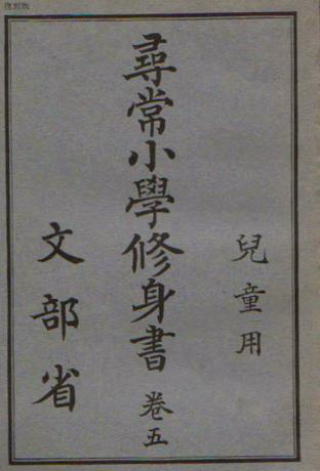 復刻版
兒童用
尋常小學修身書 卷五
文部省